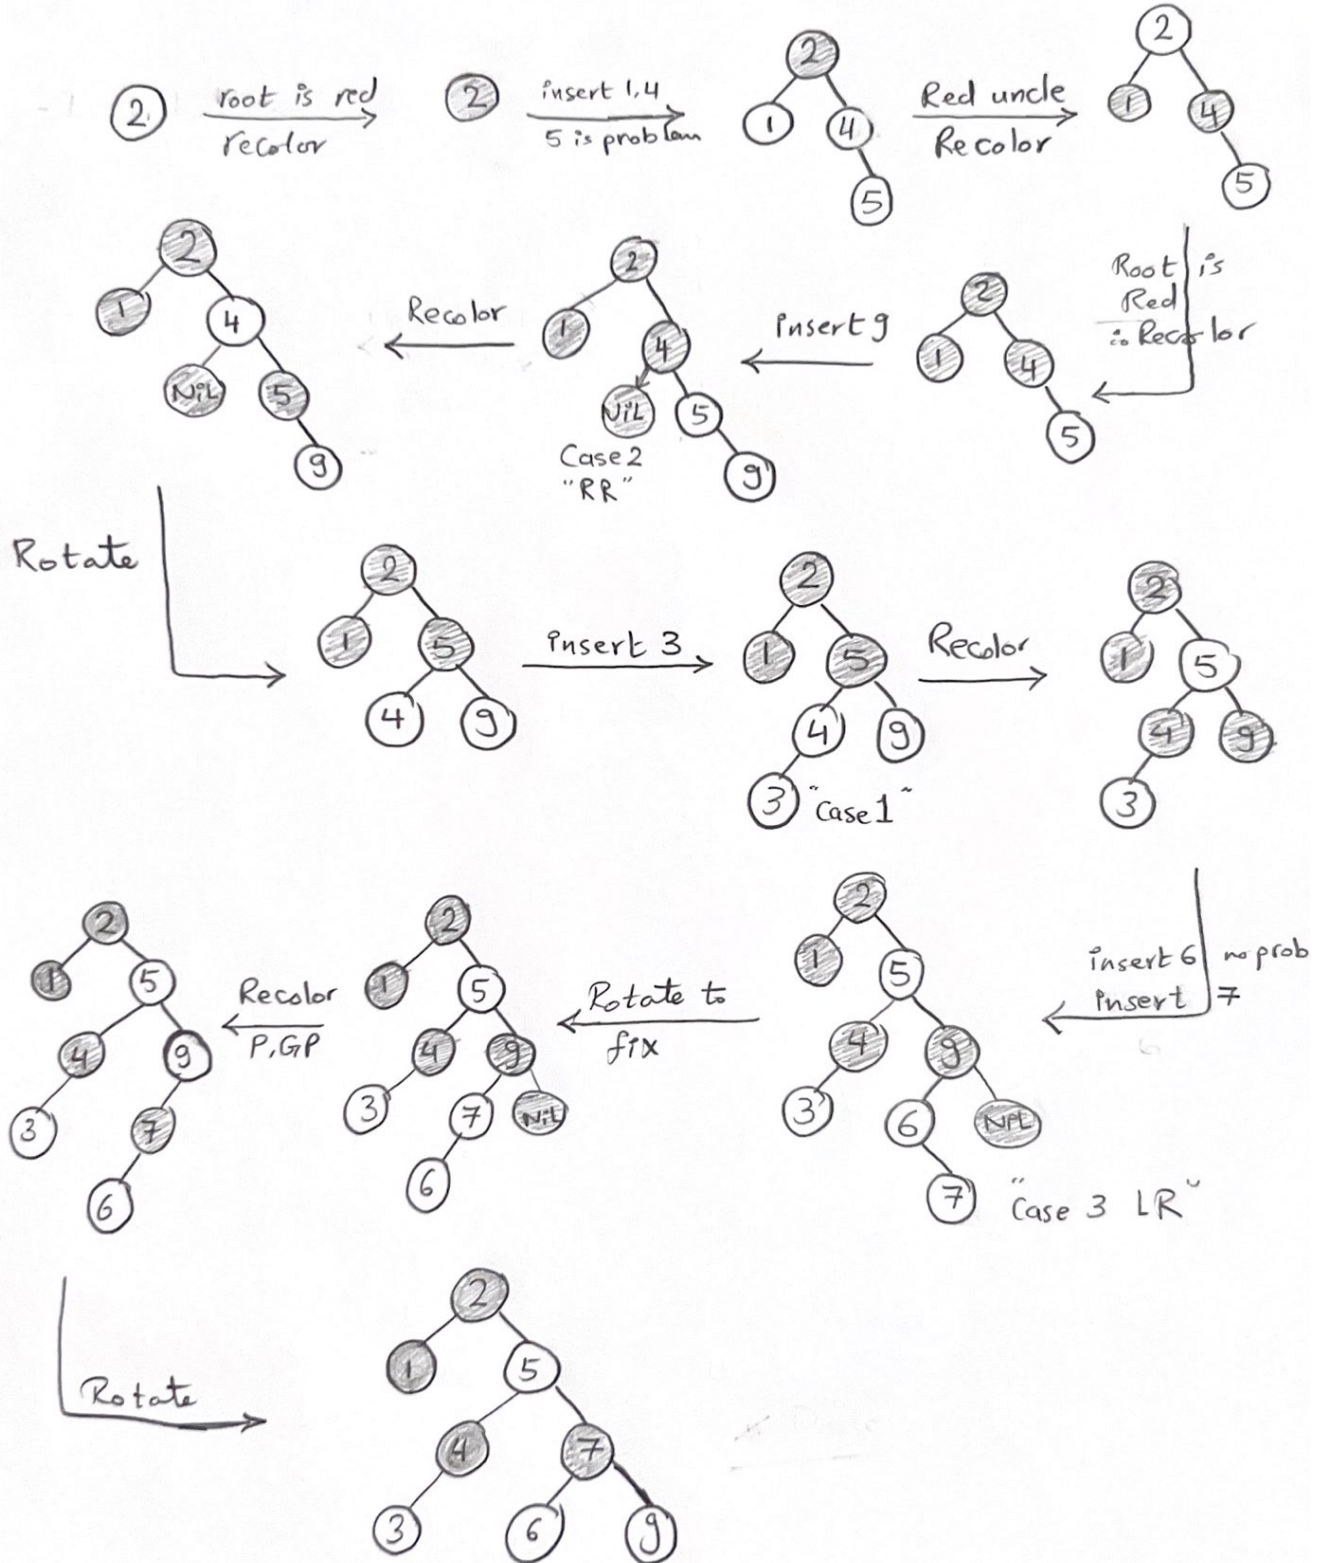 2
root is red
recolor
2
insert 1,4
5 is problem
2
1 4
5
Red uncle
Recolor
2
1 4
5
Root is
Red
∴ Recolor
2
1 4
5
insert 9
2
1 4
NiL 5
9
Case 2
"RR"
Recolor
2
1 4
NiL 5
9
Rotate
2
1 5
4 9
insert 3
2
1 5
4 9
3 "Case 1"
Recolor
2
1 5
4 9
3
insert 6 no prob
insert 7
2
1 5
4 9
3 6 NiL
7 "Case 3 LR"
Rotate to
fix
2
1 5
4 9
3 7 NiL
6
Recolor
P,GP
2
1 5
4 9
3 7
6
Rotate
2
1 5
4 7
3 6 9